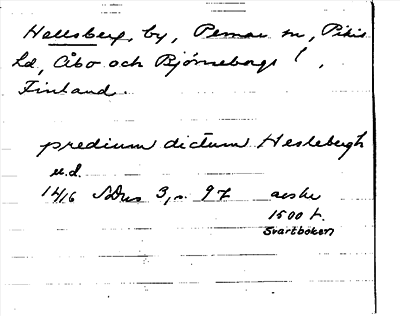 Hallsberg, by, Pemar sn, Pikis
hd, Åbo och Björneborgs l,
Finland.
predium dictum Heslebergh
u.d.
1416 SDns 3, s. 97 avskr
1500 t.
Svartboken